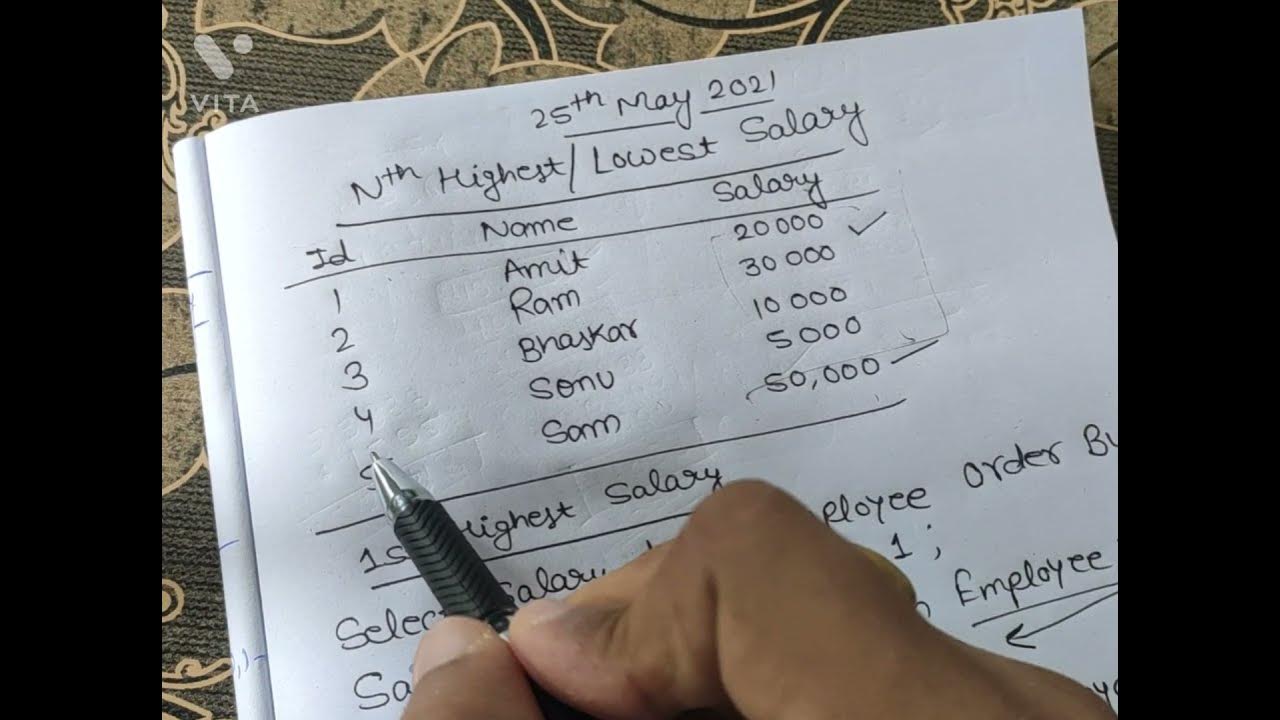 VITA
25th May 2021
Nth Highest/Lowest Salary
Id Name Salary
1 Amit 20000
2 Ram 30000
3 Bhaskar 10000
4 Sonu 5000
5 Sam 50,000
Highest Salary
Salary Order
1;
Employee